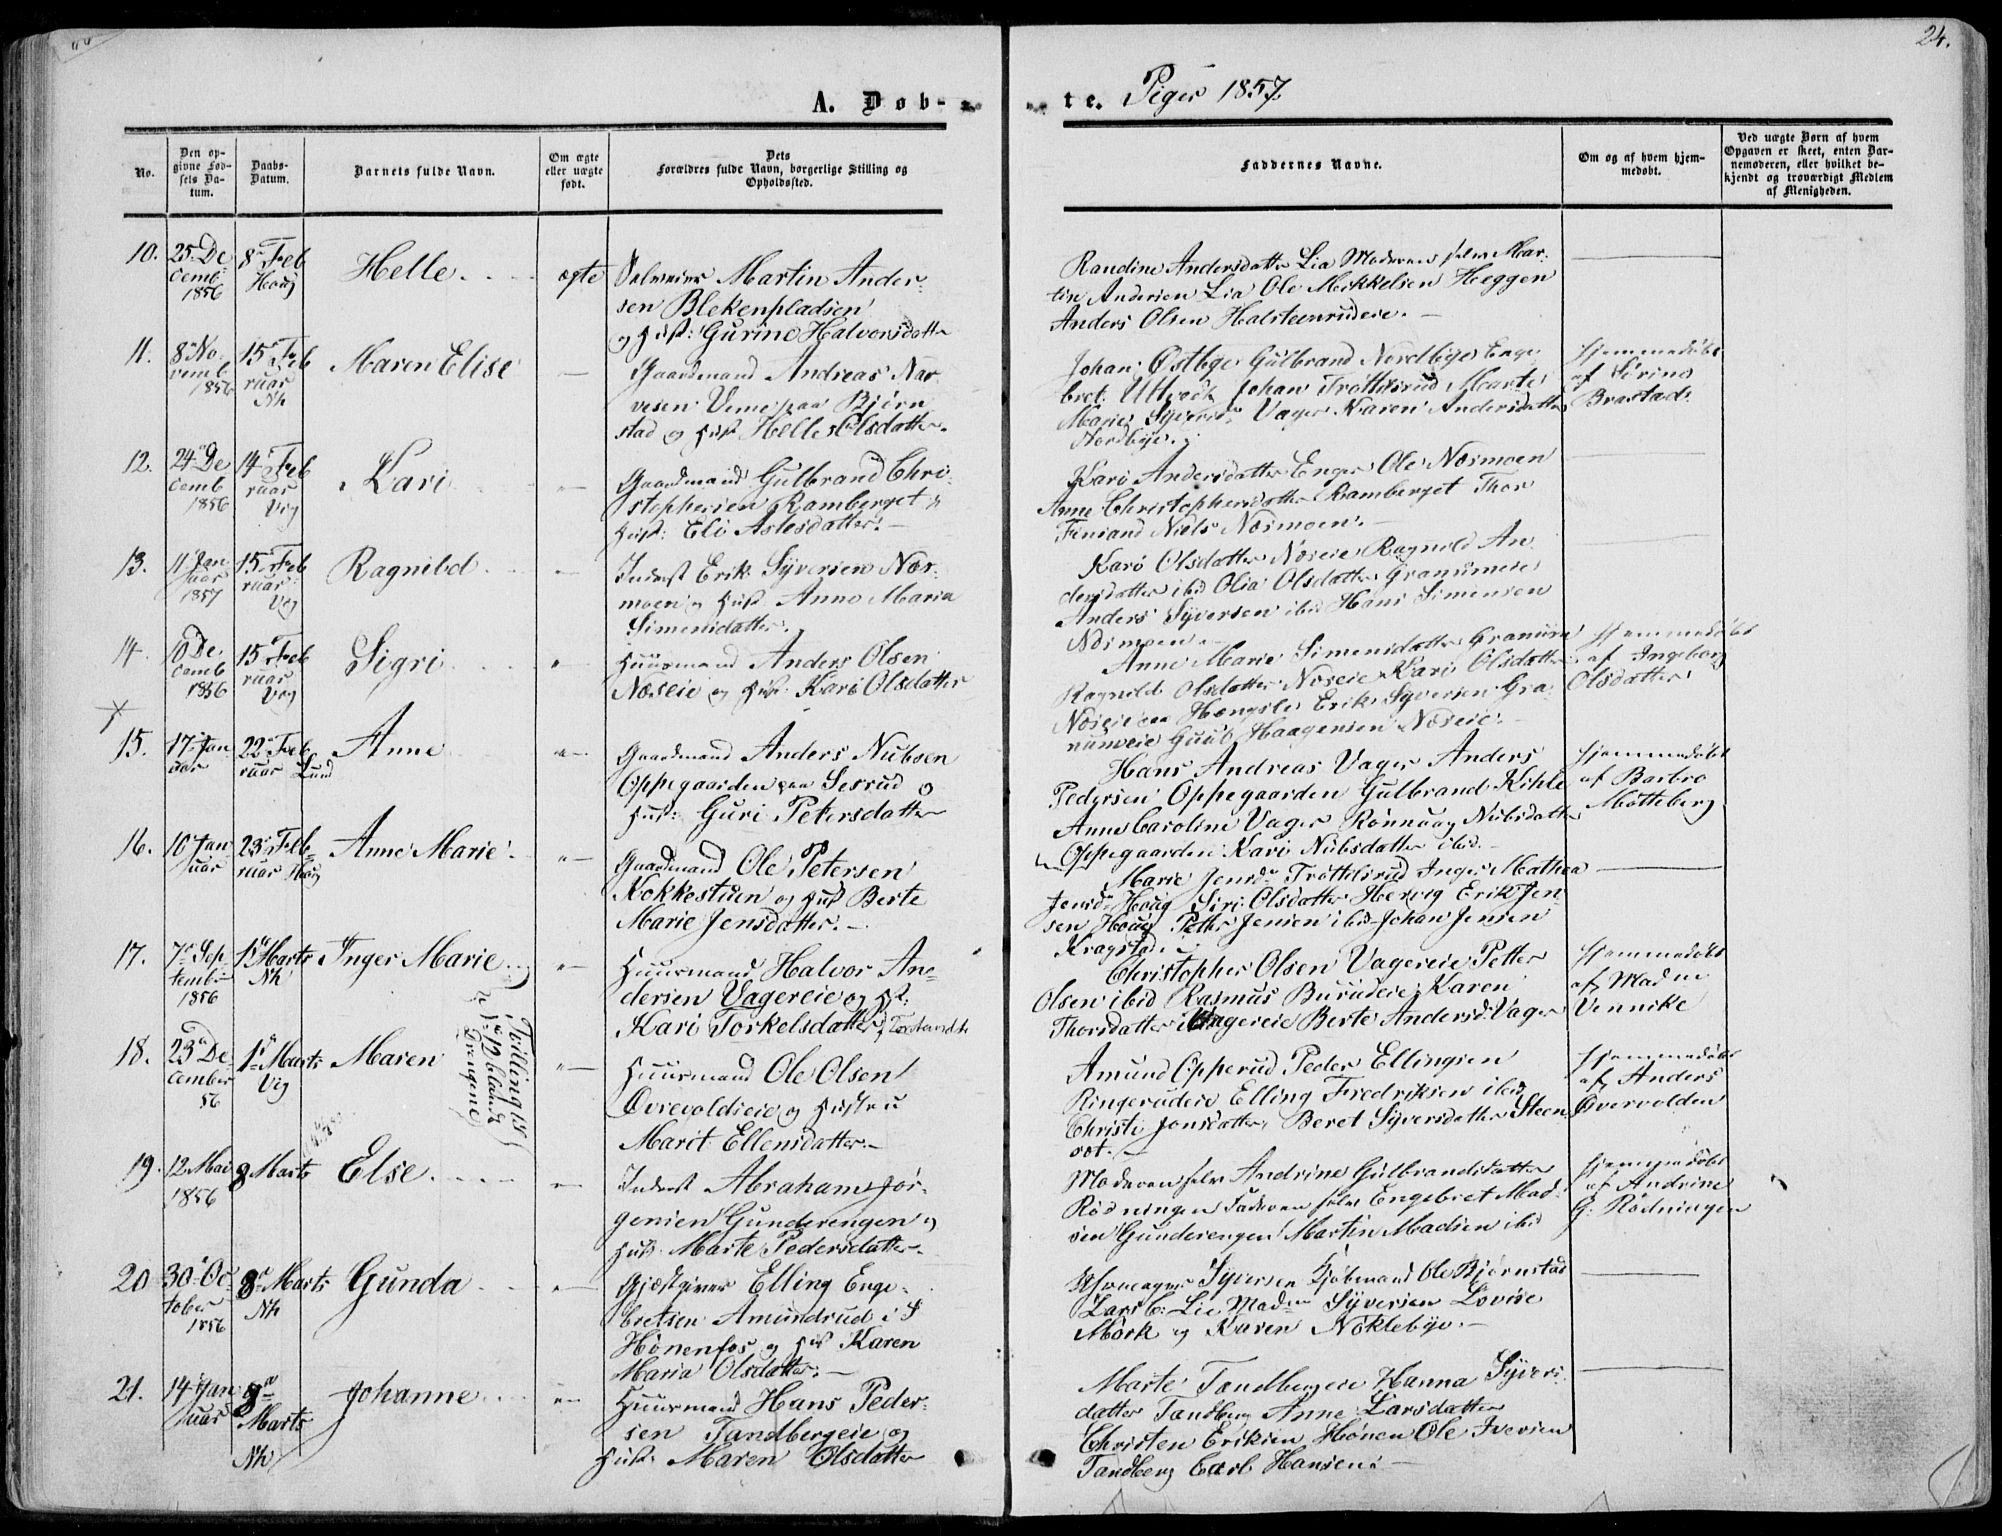 24.
A. Døb-
te. Piger 1857.
No.
Den op-
givne Fød-
sels Da-
tum.
Daabs-
Datum.
Barnets fulde Navn.
Om ægte
eller uægte
født.
Dets
Forældres fulde Navn, borgerlige Stilling og
Opholdssted.
Faddernes Navne.
Om og af hvem hjem-
medøbt.
Ved uægte Børn af hvem
Opgaven er skeet, enten Bar-
nemoderen, eller hvilket be-
kjendt og troværdigt Medlem
af Menigheden.
10. 25 De
cemb
1856
8 Feb
Houg
Helle
ægte
Selveier Martin Ander-
sen Blekenpladsen
og Hust: Gurine Halvorsdatter
Randine Andersdatter Lia Moderen selv Mar-
tin Andersen Lia Ole Mikkelsen Heggen
Anders Olsen Halsteenrudeie.
11. 8 No
vemb
1856
15 Feb
ruar
Nh
Maren Elise
Gaardmand Andreas Nar
vesen Veme paa Bjørn
stad og Hust Helle Olsdatter.
Johan Østbye Gulbrand Nordbye Enge
bret Johan Trottilsrud Marte
Marie Vager Karen Andersdatter
Nordbye.
hjemmedøbt
af
Brastad
12. 24 De
cemb
1856
14 Feb
ruar
Veg
Kari
Gaardmand Gulbrand Chri-
stophersen Ramberget
Hust: Eli Aslesdatter.
Kari Andersdatter Enger Ole Næsmoen
Anne Christophersdatter Ramberget Thor
Finsand Niels Næsmoen.
13. 11 Jan
uar
1857
15 Feb
ruar
Veg
Ragnild
Inderst Erik Syversen Næs-
moen og Hust Anne Maria
Simensdatter.
Kari Olsdatter Næseie Ragnild An
dersdatter ibid Olia Olsdatter
Anders Syversen ibid Hans Simensen
Næsmoen
14. 10 De
cemb
1856
15 Feb
ruar
Veg
Sigri
Huusmand Anders Olsen
Næseie og Hust. Kari Olsdatter
Anne Marie Simensdatter
Ragnild Olsdatter Næseie Kari Olsdatter
Næseie Hængsle Erik Syversen Gra
numeie Haagensen Næseie.
hjemmedøbt
af Ingeborg
Olsdatter
15. 17 Jan
uar
22 Feb
ruar Lund
Anne
Gaardmand Anders Nubsen
Oppegaarden paa Sesrud og
Hust: Guri Petersdatter
Hans Andreas Vager Anders
Pedersen Oppegaarden Gulbrand Kihle
Anne Caroline Vager Rønnaug Nubsdatter
Oppegaarden Kari Nubsdatter ibid
hjemmedøbt
af Barbro
Motteberg
16. 10 Jan
uar
23 Feb
ruar Houg
Anne Marie
Gaardmand Ole Petersen
Kokkestuen og Hust Berte
Marie Jensdatter.
Marie Trottilsrud Inger Mathea
Houg Siri Olsdatter Hervig Erik Jen-
sen Houg Petter Jensen ibid Johan Jensen
Kragstad
17. 7 Sep
tember
1856
1 Marts
Nh
Inger Marie
Huusmand Halvor An-
dersen Vagereie og
Kari Torkelsdatter
Christopher Olsen Vagereie Petter
Olsen ibid Rasmus Burudeie Karen
Thorsdatter Vagereie Berte Andersd: Vager
hjemmedøbt
af Mad m
Vennike
Tvillinger
No 12 blandt
Drengene
18. 23 De
cember
56
1 Marts
Veg
Maren
Huusmand Ole Olsen
Øvrevoldseie og Hustru
Marit Ellensdatter.
Amund Opperud Peder Ellingsen
Ringerudeie Elling Fredriksen ibid
Christi Jonsdatter Beret Syversdatter Steen
sæt.
hjemmedøbt
af Anders
Øvervolden
19. 12 Mai
1856
8 Marts
Else
Inderst Abraham Jør-
gensen Gunderengen og
Hust. Marte Pedersdatter.
Moderen selv Andrine Gulbrandsdatter
Rødningen Faderen selv Engebret Mad
sen Gunderengen Martin Madsen ibid
hjemmedøbt
af Andrine
G. Rødningen
20 30 Oc
tober
1856
8 Marts
Nh
Gunda
Gjæstgiver Elling Enge-
bretsen Amundrud i
Hønenfos og Hust Karen
Maria Olsdatter.
Syversen Kjøbmand Ole Bjørnstad
Lars C. Lie Mad m Syversen Lovise
Mørk og Karen Nøklebye.
21. 14 Jan
uar
8
Marts
Nh
Johanne
Huusmand Hans Peder-
sen Tandbergeie og
Hust. Maren Olsdatter
Marte Tandbergeie Hanna Syvers
datter Tandberg Anne Larsdatter
Christen Eriksen Hønen Ole Iversen
Tandberg Carl Hansen.